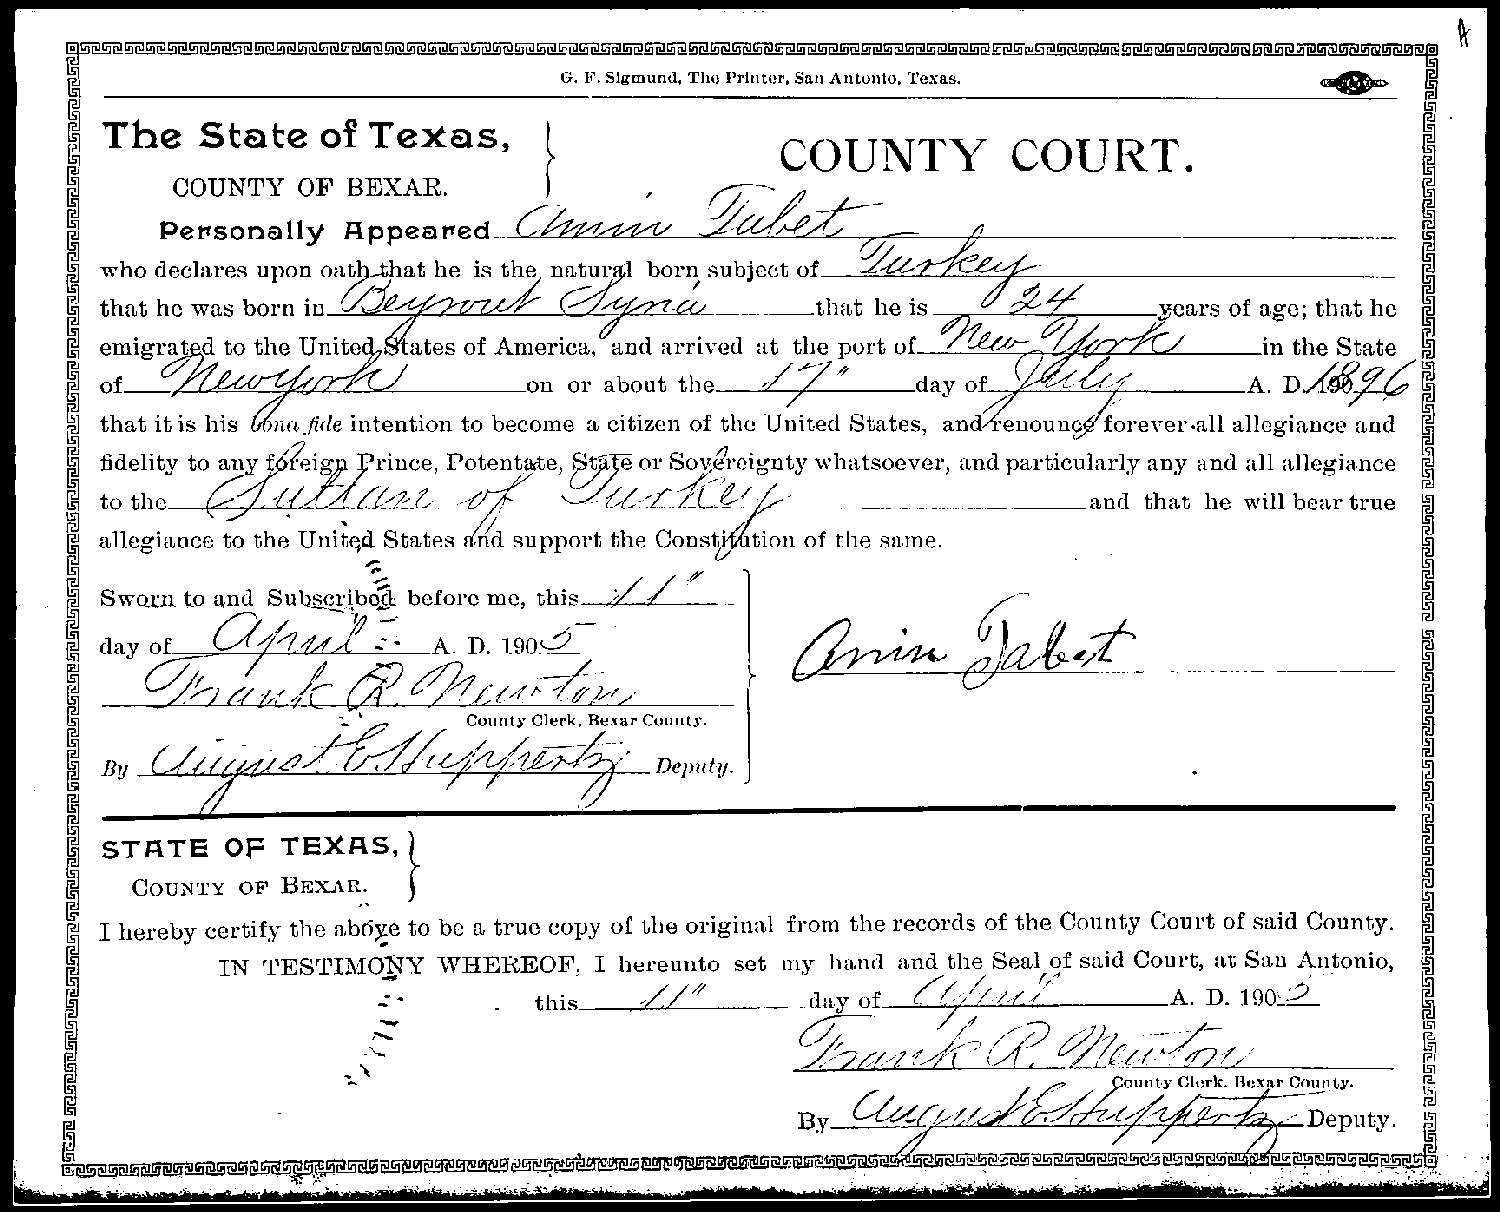 A
G. F. Sigmund, The Printer, San Antonio, Texas.
The State of Texas,
COUNTY OF BEXAR.
COUNTY COURT.
Personally Appeared Amin Tabet
who declares upon oath that he is the natural born subject of Turkey
that he was born in Beyrout Syria that he is 24 years of age; that he
emigrated to the United States of America, and arrived at the port of New York in the State
of New York on or about the 17" day of July A. D. 1896
that it is his bona fide intention to become a citizen of the United States, and renounce forever all allegiance and
fidelity to any foreign Prince, Potentate, State or Sovereignty whatsoever, and particularly any and all allegiance
to the Sultan of Turkey and that he will bear true
allegiance to the United States and support the Constitution of the same.
Sworn to and Subscribed before me, this 11"
day of April A. D. 1905
Amin Tabet
Frank R. Newton
County Clerk, Bexar County.
By August E. Huppertz Deputy.
STATE OF TEXAS,
COUNTY OF BEXAR.
I hereby certify the above to be a true copy of the original from the records of the County Court of said County.
IN TESTIMONY WHEREOF, I hereunto set my hand and the Seal of said Court, at San Antonio,
this 11" day of April A. D. 1905
Frank R. Newton
County Clerk, Bexar County.
By August E. Huppertz Deputy.